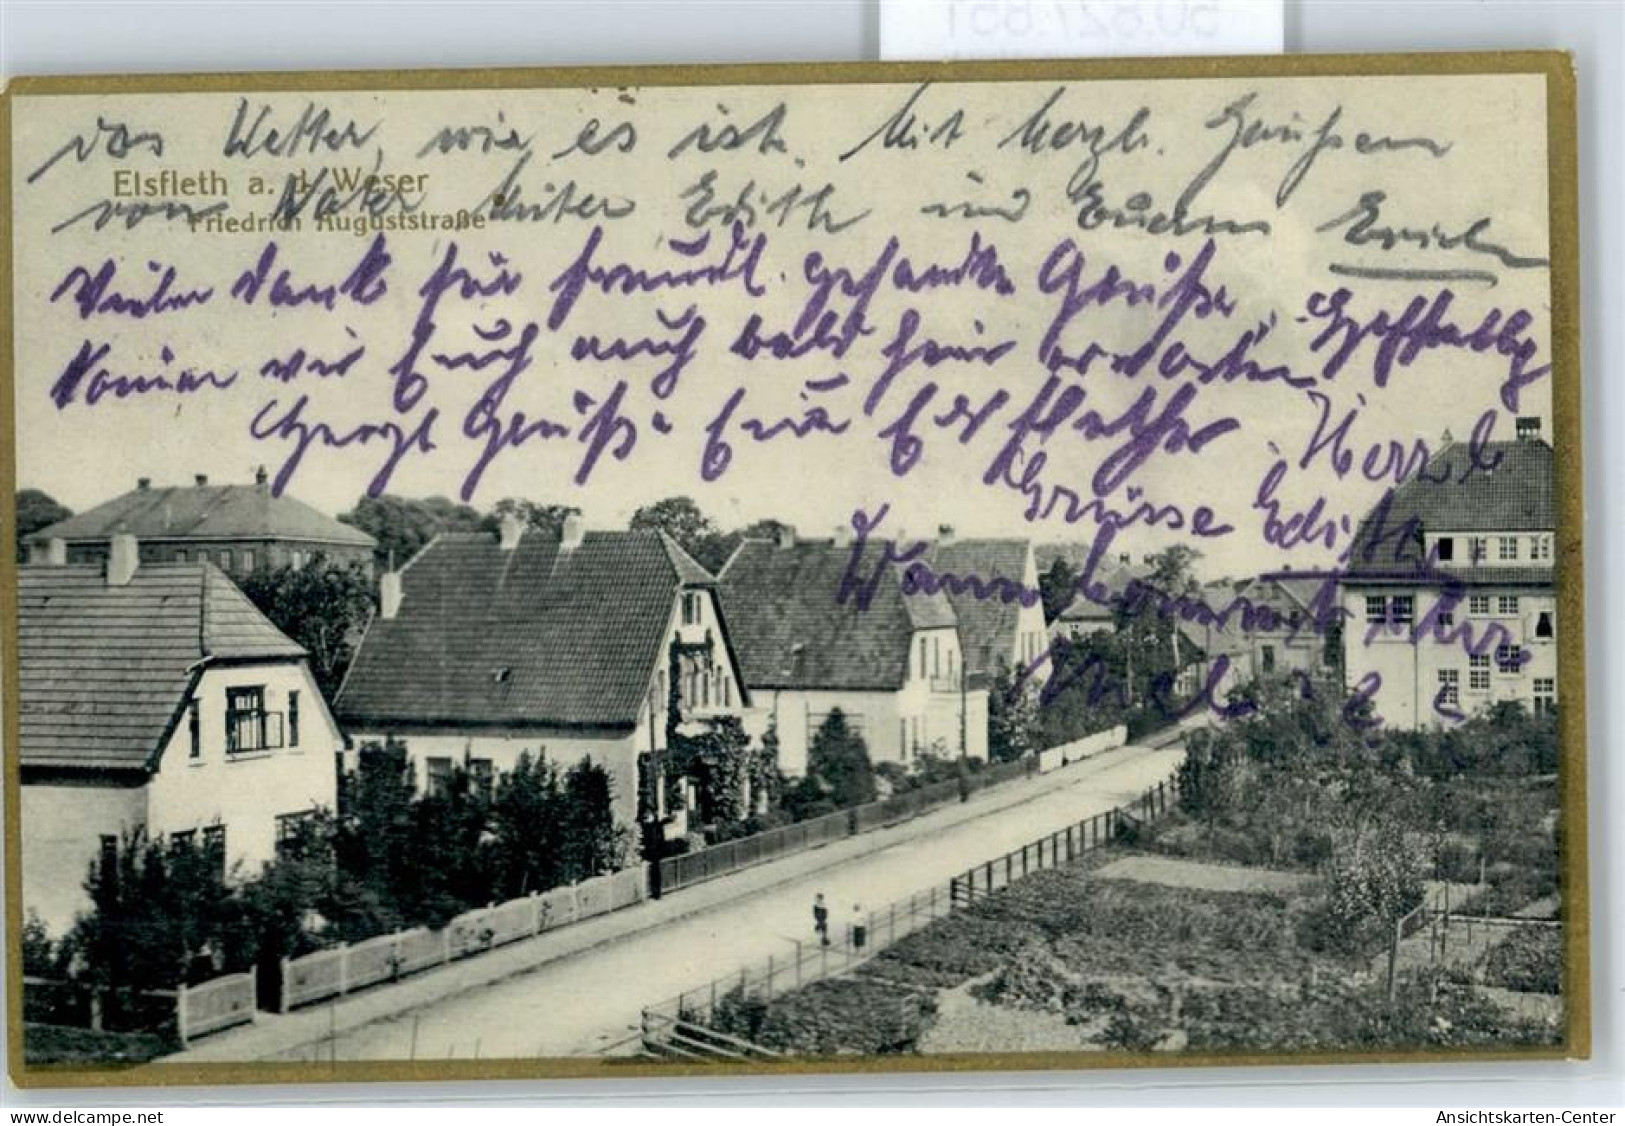 das Wetter, wie es ist. Mit herzl. Grüßen
Elsfleth a. d. Weser
von Vater Mutter Edith und Eurem Erich
Friedrich Auguststraße
Vielen Dank für freundl. gesandte Grüße.
wir Euch auch bald hier erwarten
Herzl Grüße Eure Elsflether
Herzl
Grüsse Edith
Wann kommt Ihr
mal
www.delcampe.net
Ansichtskarten-Center